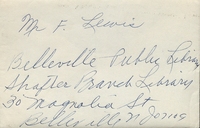 Mr F. Lewis
Belleville Public Library
Shafter Branch Library
30 Magnolia St
Belleville N Jersey